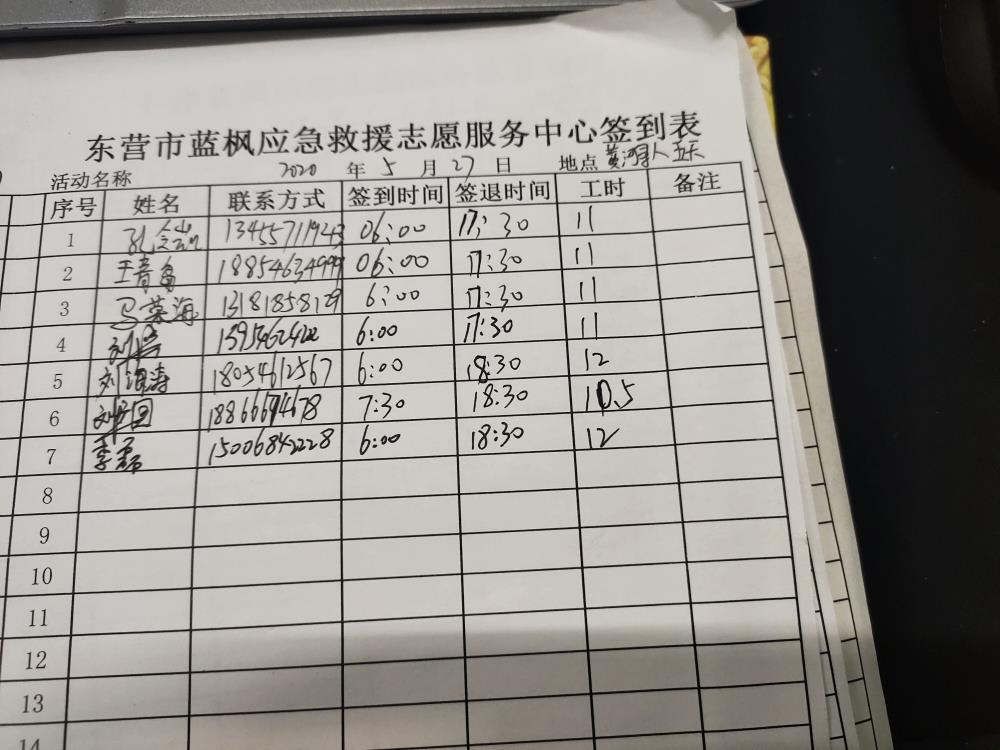 东营市蓝枫应急救援志愿服务中心签到表
活动名称 2020 年 5 月 27 日 地点
序号 姓名 联系方式 签到时间 签退时间 工时 备注
1 06:00 17:30 11
2 王青 18854634999 06:00 17:30 11
3 马荣海 13181858129 6:00 17:30 11
4 刘 6:00 17:30 11
5 刘海涛 18054612567 6:00 18:30 12
6 18866694678 7:30 18:30 10.5
7 李 15006842228 6:00 18:30 12
8
9
10
11
12
13
14